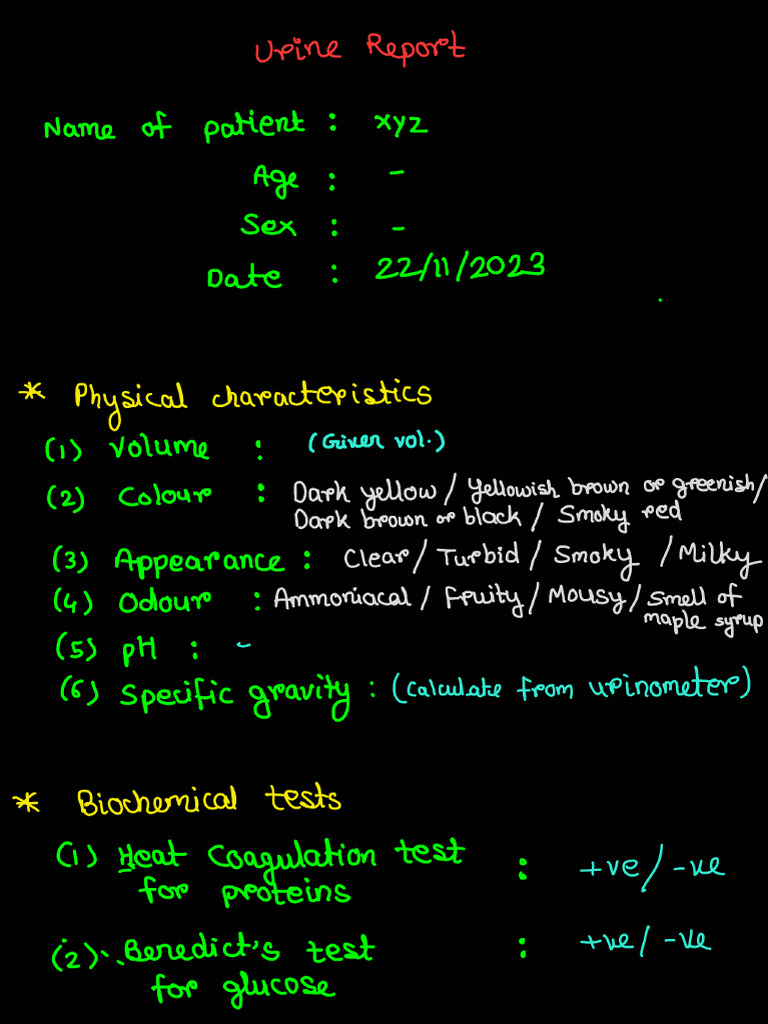 Urine Report
Name of patient : xyz
Age : -
Sex : -
Date : 22/11/2023
* Physical characteristics
(1) Volume : (Given vol.)
(2) Colour : Dark yellow / Yellowish brown or greenish/
Dark brown or black / Smoky red
(3) Appearance : Clear / Turbid / Smoky / Milky
(4) Odour : Ammoniacal / Fruity / Mousy / Smell of
maple syrup
(5) pH : -
(6) Specific gravity : (Calculate from urinometer)
* Biochemical tests
(1) Heat Coagulation test : +ve / -ve
for proteins
(2) Benedict's test : +ve / -ve
for glucose